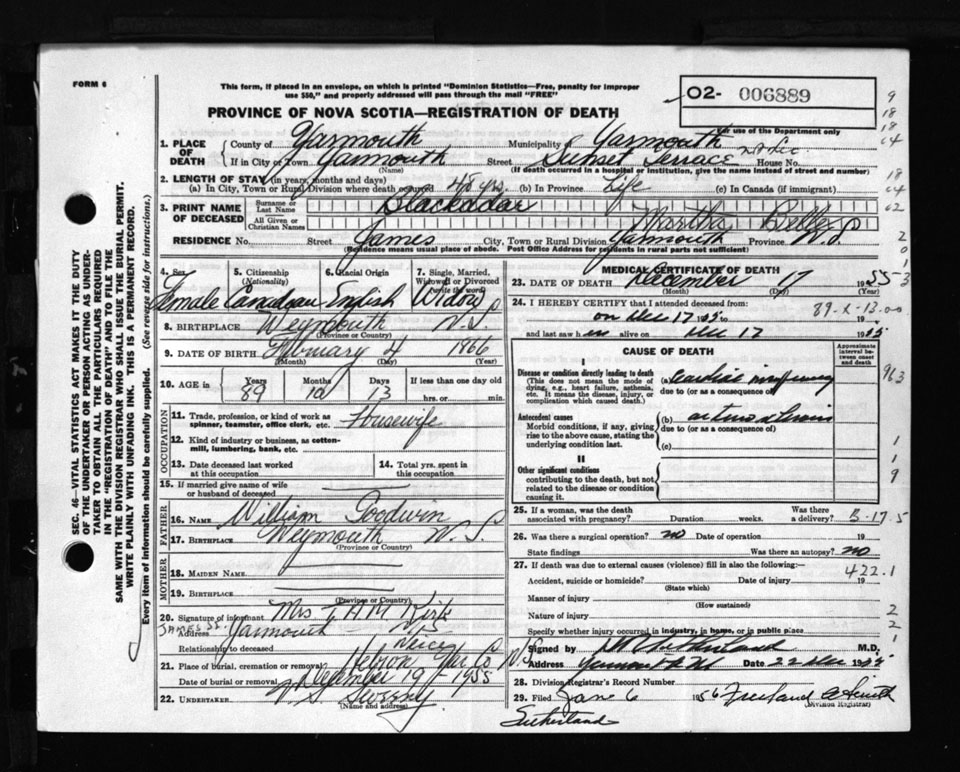 FORM 6
This form, if placed in an envelope, on which is printed "Dominion Statistics—Free, penalty for improper
use $50," and properly addressed will pass through the mail "FREE"
PROVINCE OF NOVA SCOTIA—REGISTRATION OF DEATH
02- 006889
For use of the Department only
1. PLACE OF DEATH
County of Yarmouth Municipality of Yarmouth
If in City or Town Yarmouth Street Sunset Terrace House No.
(Name) (If death occurred in a hospital or institution, give name instead of street and number)
2. LENGTH OF STAY (in years, months and days)
(a) In City, Town or Rural Division where death occurred 48 yrs. (b) In Province Life (c) In Canada (if immigrant)
3. PRINT NAME OF DECEASED
Surname or Last Name Blackadar
All Given or Christian Names Martha Belle
RESIDENCE No. Street James City, Town or Rural Division Yarmouth Province N.S.
(Residence means usual place of abode. Post Office Address for residents in rural parts not sufficient)
4. Sex 5. Citizenship (Nationality) 6. Racial Origin 7. Single, Married, Widowed or Divorced (write the word)
Female Canadian English Widow
8. BIRTHPLACE Weymouth N.S.
9. DATE OF BIRTH February 4 1866
(Month) (Day) (Year)
10. AGE in Years 89 Months 10 Days 13 If less than one day old hrs. or min.
OCCUPATION
11. Trade, profession, or kind of work as spinner, teamster, office clerk, etc. Housewife
12. Kind of industry or business, as cotton-mill, lumbering, bank, etc.
13. Date deceased last worked at this occupation
14. Total yrs. spent in this occupation
15. If married give name of wife or husband of deceased
FATHER
16. NAME William Goodwin
17. BIRTHPLACE Weymouth N.S.
(Province or Country)
MOTHER
18. MAIDEN NAME
19. BIRTHPLACE
(Province or Country)
20. Signature of informant Mrs T H M Kirk
Address JAMES ST. Yarmouth N.S.
Relationship to deceased Neice
21. Place of burial, cremation or removal Hebron Yar Co N.S.
Date of burial or removal December 19 1955
22. UNDERTAKER V S Sweeny
(Name and address)
MEDICAL CERTIFICATE OF DEATH
23. DATE OF DEATH December 17 1955
(Month) (Day)
24. I HEREBY CERTIFY that I attended deceased from:
on Dec 17 55 to 19
89-X-13.00
and last saw h alive on Dec 17 1955
CAUSE OF DEATH
Approximate interval between onset and death
I
Disease or condition directly leading to death
(This does not mean the mode of dying, e.g., heart failure, asthenia, etc. It means the disease, injury, or complication which caused death.)
(a) Cardiac
due to (or as a consequence of)
Antecedent causes
Morbid conditions, if any, giving rise to the above cause, stating the underlying condition last.
(b)
due to (or as a consequence of)
(c)
II
Other significant conditions
contributing to the death, but not related to the disease or condition causing it.
25. If a woman, was the death associated with pregnancy? Duration weeks. Was there a delivery?
B-17.5
26. Was there a surgical operation? no Date of operation 19
State findings Was there an autopsy? no
27. If death was due to external causes (violence) fill in also the following:—
422.1
Accident, suicide or homicide? Date of injury 19
(State which)
Manner of injury
(How sustained)
Nature of injury
Specify whether injury occurred in industry, in home, or in public place
Signed by Sutherland M.D.
Address Yarmouth N.S. Date 22 Dec 1955
28. Division Registrar's Record Number
29. Filed Jane 6 1956 Freeland A Smith
(Division Registrar)
Sutherland
SEC. 46—VITAL STATISTICS ACT MAKES IT THE DUTY
OF THE UNDERTAKER OR PERSON ACTING AS UNDER-
TAKER TO OBTAIN ALL THE PARTICULARS REQUIRED
IN THE "REGISTRATION OF DEATH" AND TO FILE THE
SAME WITH THE DIVISION REGISTRAR WHO SHALL ISSUE THE BURIAL PERMIT.
WRITE PLAINLY WITH UNFADING INK. THIS IS A PERMANENT RECORD.
Every item of information should be carefully supplied. (See reverse side for instructions.)
9
18
18
64
18
64
62
2
0
1
3
963
1
1
9
2
2
1